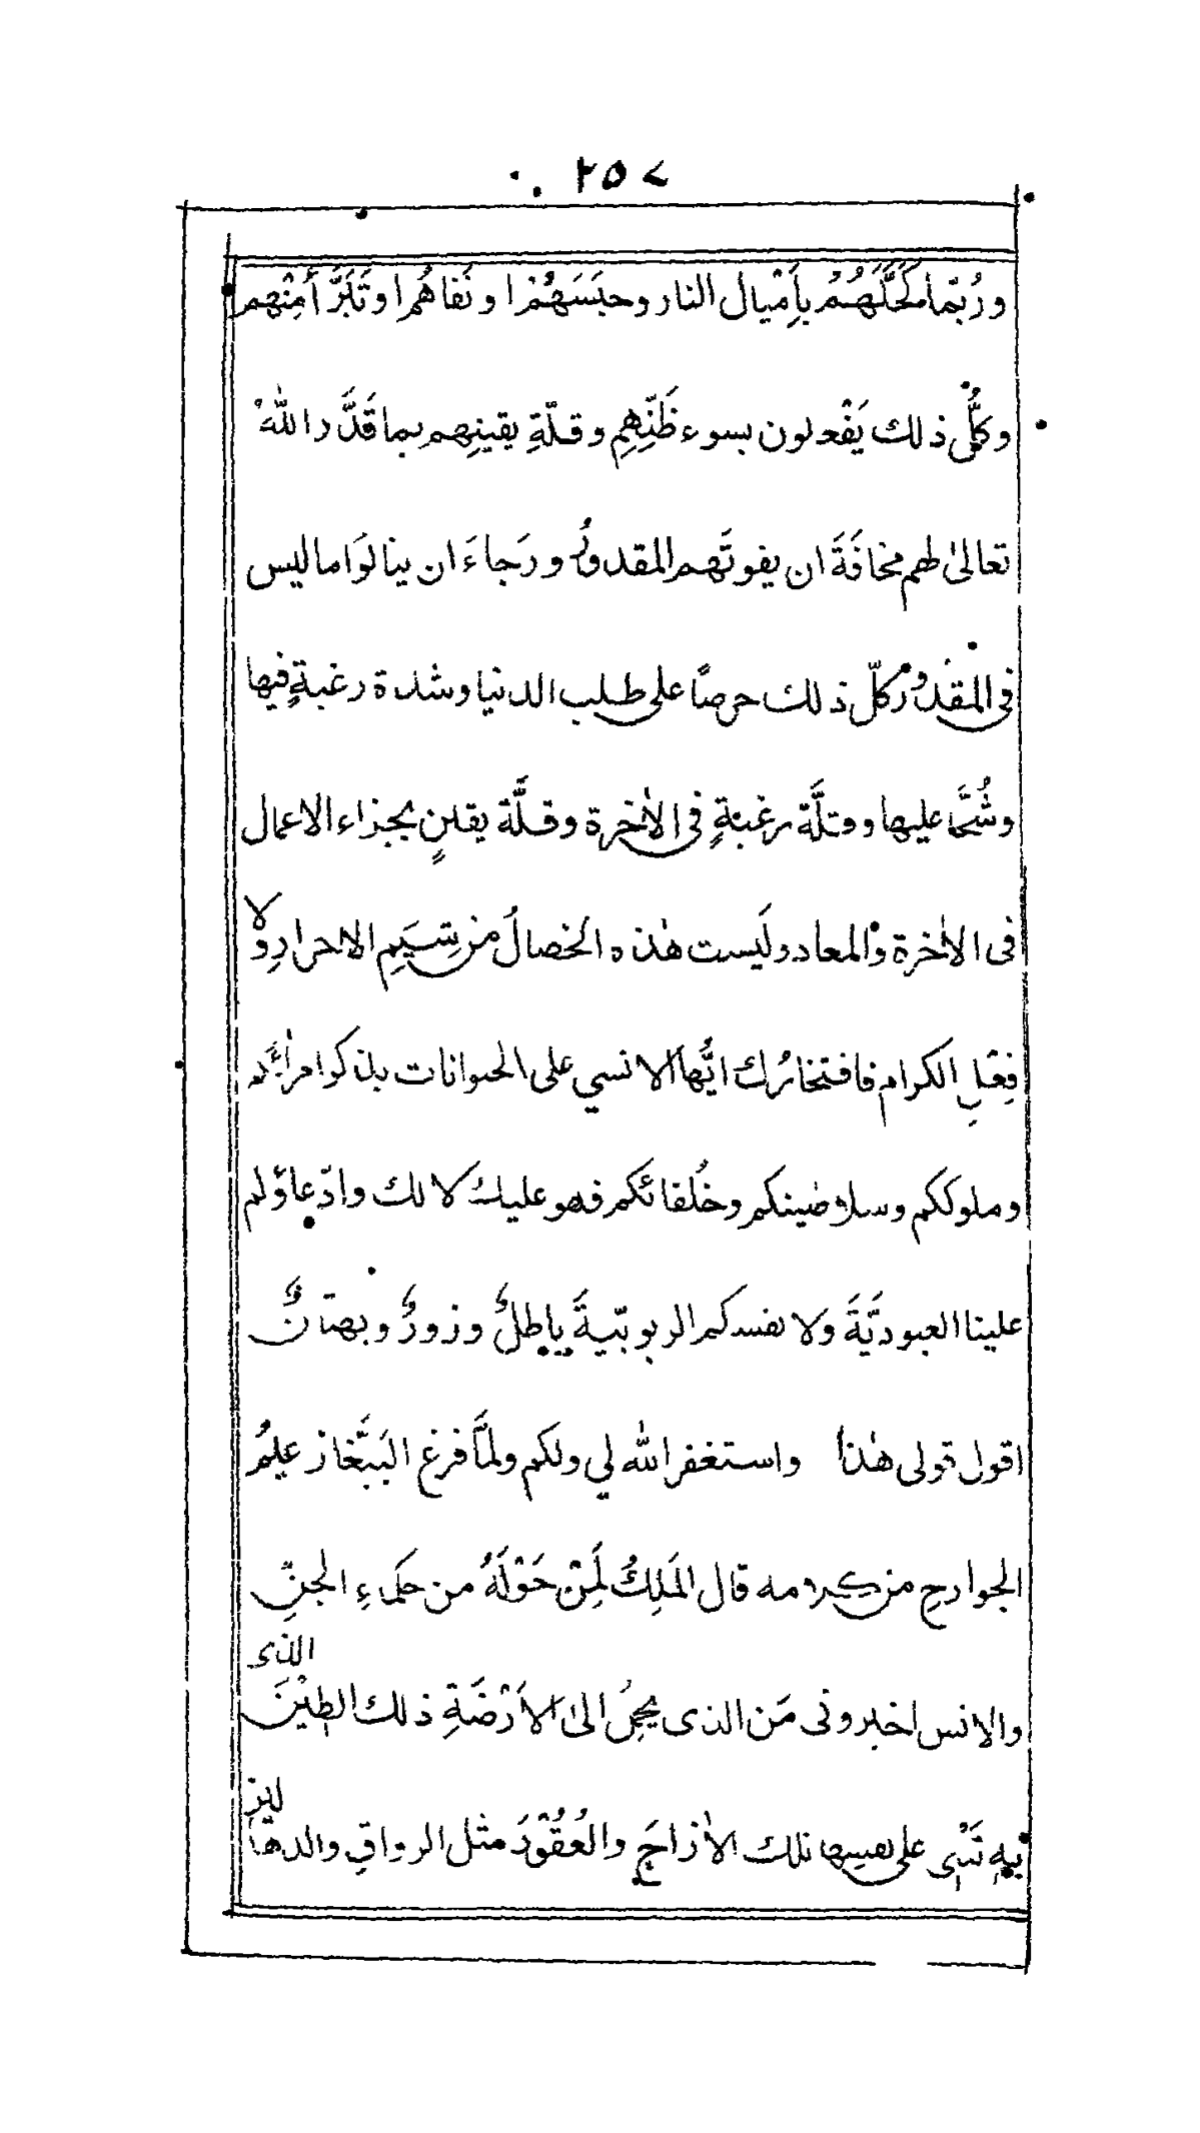 ٢٥٧
ورُبّما كَحَّلَهُمْ بِاَمْيال النار وحَبَسَهُمْ او نَفاهُم او تَبَرَّأ مِنْهم
وكلُّ ذلك يَفْعلون بسوء ظَنِّهِمِ وقلّةِ يقينِهم بما قَدَّر اللهُ
تعالىٰ لهم مخافَةَ ان يفوتَهم المقدورُ ورَجاءَ ان ينالوَا ما ليس
فى المقْدُورِ كلّ ذلك حرصًا على طلب الدنيا وشدة رغبةٍ فيها
وشُحًّا عليها وقلَّة رغبةٍ فى الاٰخرة وقلَّة يقينٍ بجزاء الاعمال
فى الاٰخرة والمعاد ولَيست هٰذه الخصالُ من شِيَمِ الاحرارِ ولا
فِعْلِ الكرام فافتخارُك ايُّها الانسي على الحيوانات بذكر امرائكم
وملوككم وسلاطينكم وخُلفائكم فهو عليك لا لك وادّعاؤكم
علينا العبوديَّةَ ولانفسكم الربوبيّةَ باطلٌ وزورٌ وبهتانٌ
اقول قولى هٰذا واستغفر الله لي ولكم ولمّا فرغ البَبَّغا زعيمُ
الجوارحِ من كلامه قال المَلِكُ لَمِنْ حَوْلَهُ من حكماءِ الجنِّ
والانس اخبرونى مَن الذى يحملُ الىٰ الاَرْضَةِ ذلك الطِيْنَ الذى
بِهِ تَبْنِى على نفسِها تلك الاٰزاجَ والعُقُوْدَ مثل الرواقِ والدهاليز